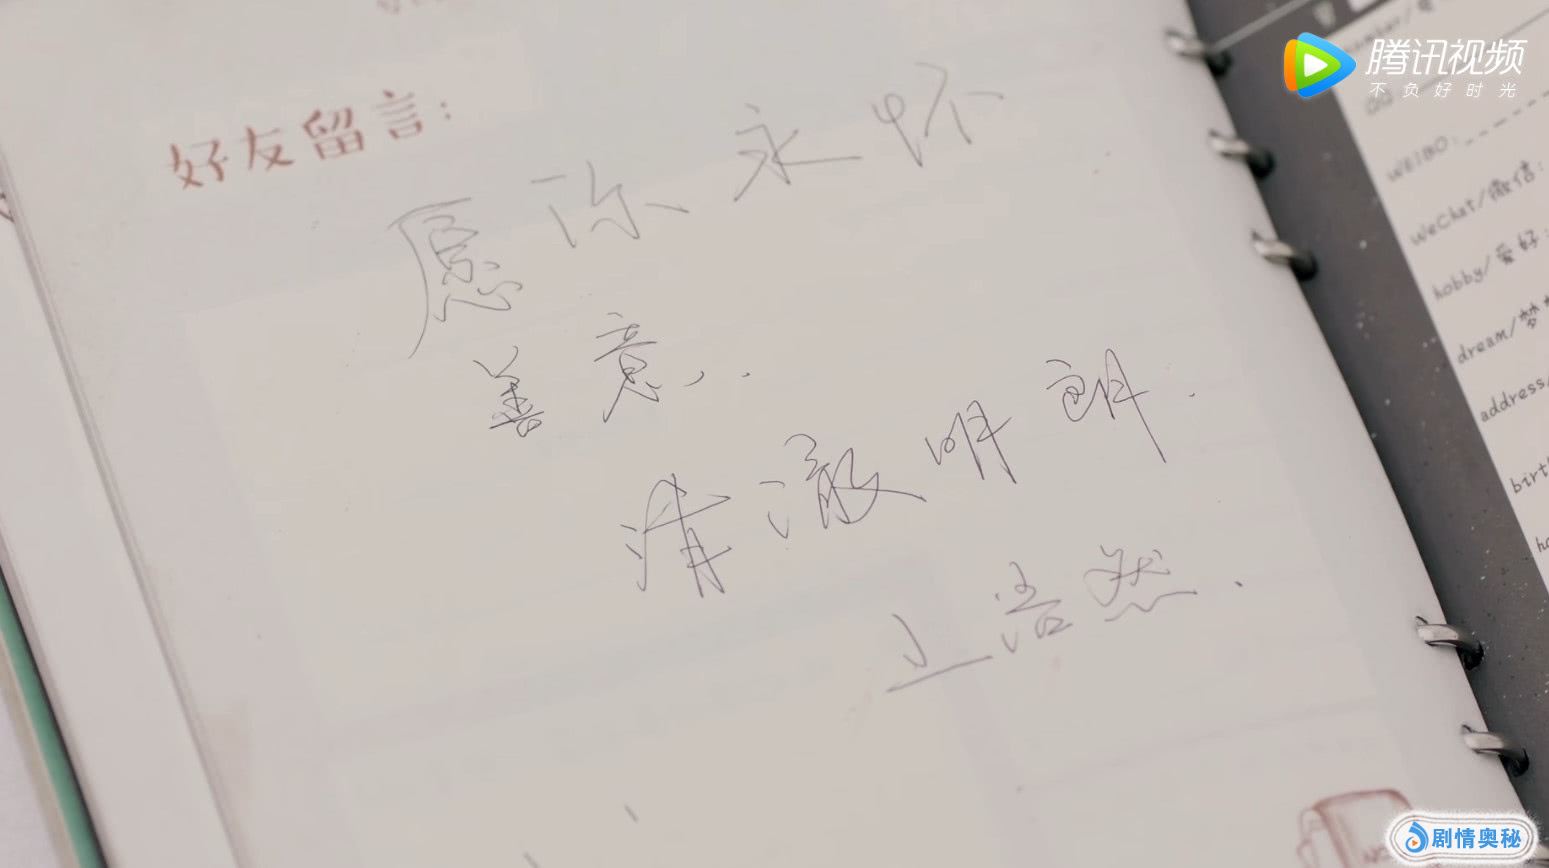 好友留言:
愿你永怀
善意..
清澈明朗.
王浩然.
腾讯视频
不负好时光
QQ
WEIBO:
WeChat/微信:
hobby/爱好:
dream/梦
address/
birt
剧情奥秘